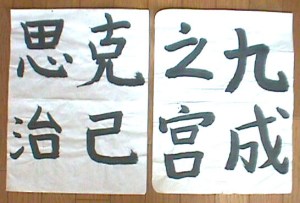 九成
之宮
克己
思治